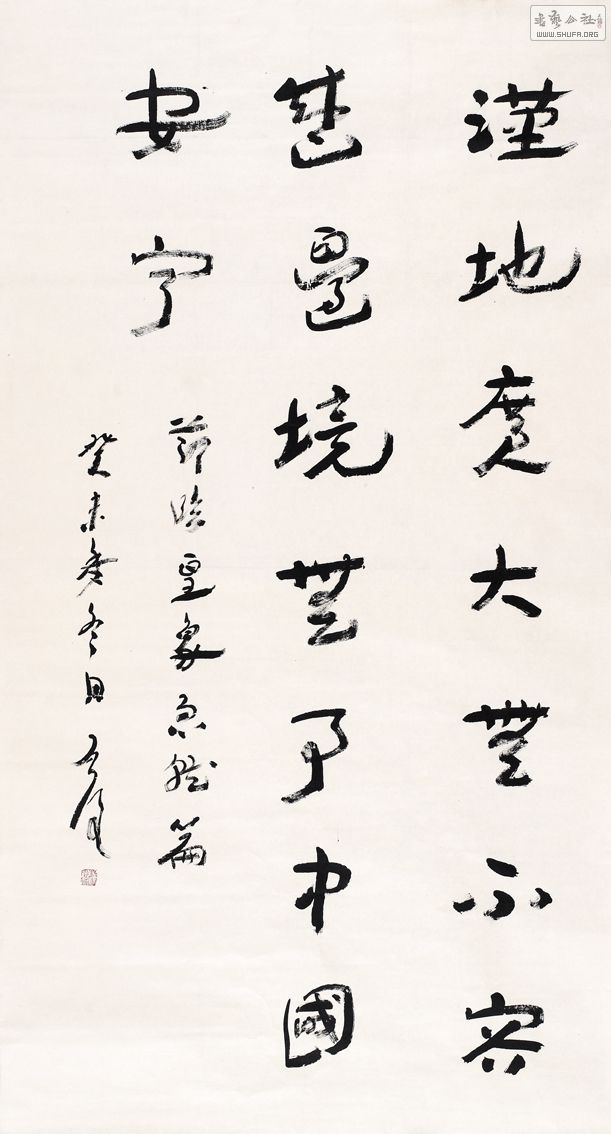 書藝公社
WWW.SHUFA.ORG
漢地廣大無不容
盛邊境無事中國
安宁
節臨皇象急就篇
癸未冬日